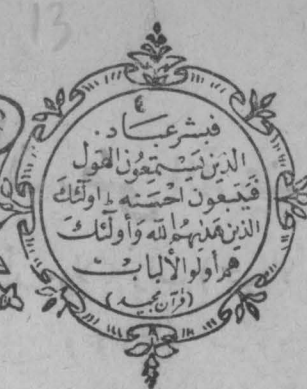 13
فبشر عباد.
الذين يستمعون القول
فيتبعون احسنه ط اولئك
الذين هديهم الله واولئك
هم اولو الألباب
(قرآن مجید)